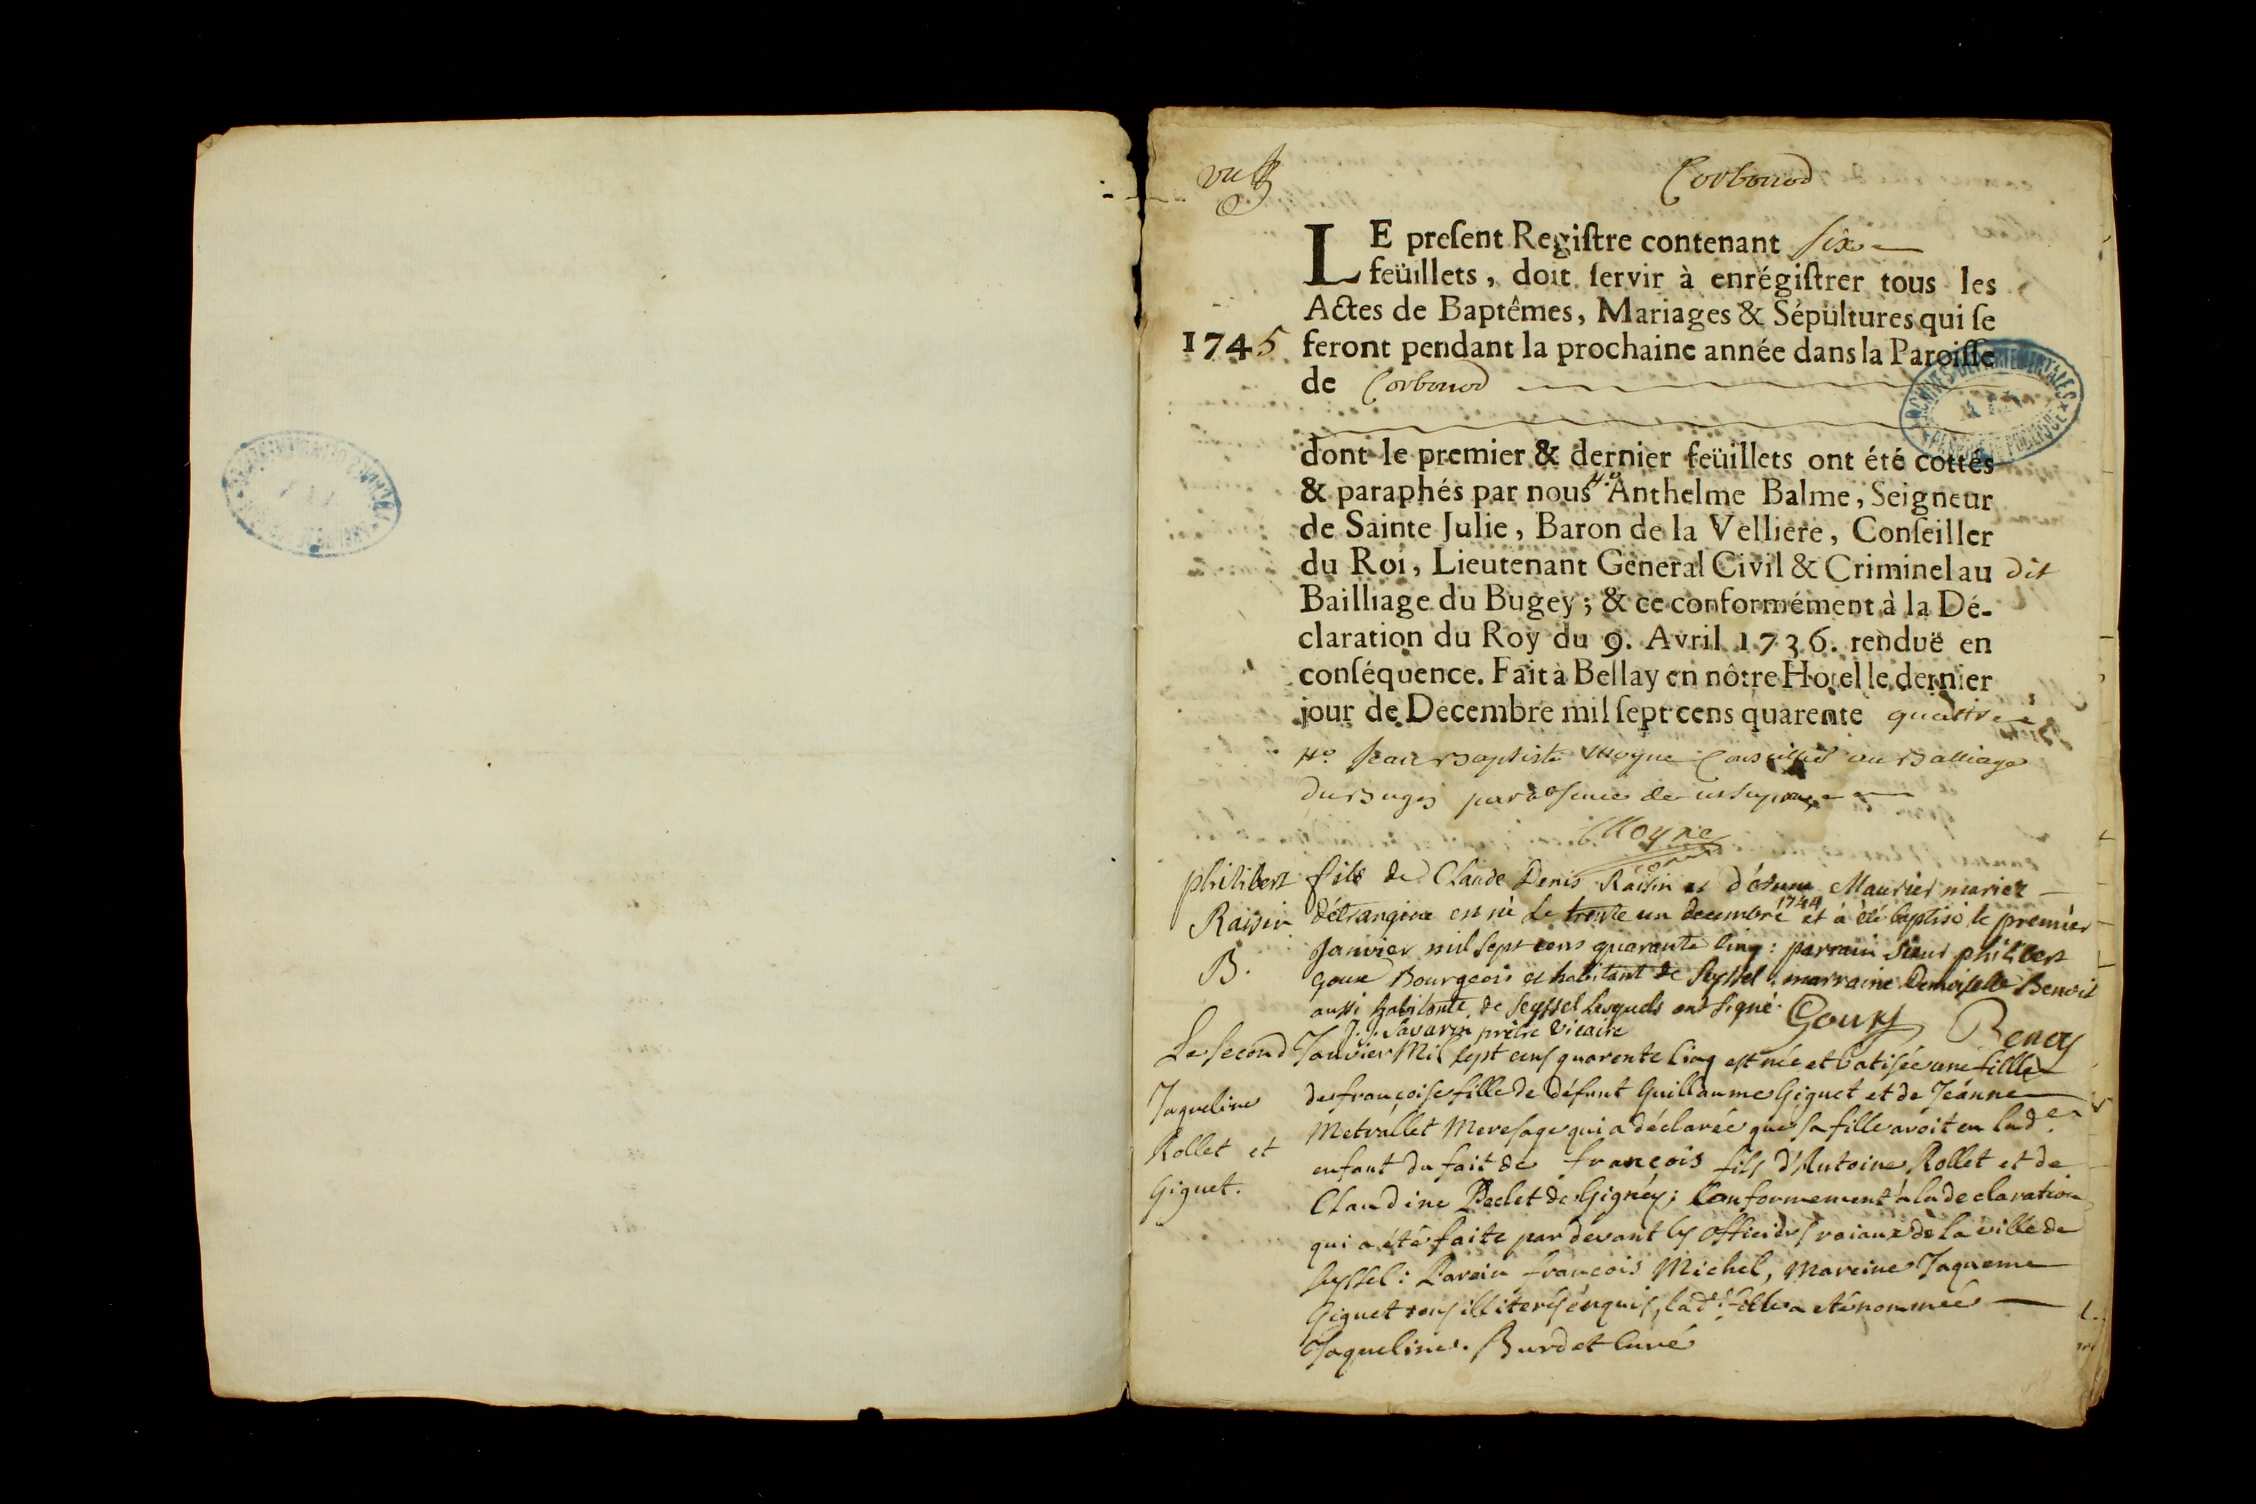 vu
Corbonod
LE preſent Regiſtre contenant six
feüillets, doit ſervir à enrégiſtrer tous les
Actes de Baptêmes, Mariages & Sépültures qui ſe
1745 feront pendant la prochaine année dans la Paroiſſe
de Corbonod
dont le premier & dernier feüillets ont été cottés
& paraphés par nous Anthelme Balme, Seigneur
de Sainte Julie, Baron de la Velliere, Conſeiller
du Roi, Lieutenant General Civil & Criminel au dit
Bailliage du Bugey; & ce conformément à la Dé-
claration du Roy du 9. Avril 1736. renduë en
conſéquence. Fait à Bellay en nôtre Hotel le dernier
jour de Decembre mil ſept cens quarente quattre
Jean Baptiste Moyne Conseiller au Balliage
du Bugey par absence de
Moyne
philibert fils de Claude Denis Raisin et Maurier mariez
Raisin d'étrangine est né Le trente un decembre 1744 et à été baptisé le premier
B. Janvier mil sept cens quarante Cinq: parrain sieur philibert
Goux Bourgeois et habitant de Seyssel; marraine Demoiselle Benoit
aussi habitante de Seyssel Lesquels ont signé. Gouy Benoy
J. J. Savarin prêtre Vicaire
Le second Janvier Mil sept cens quarente Cinq est née et batisée une fille
Jaqueline de françoise fille de défunt Guillaume Giguet et de Jeanne
Rollet et Metrallet Mere sage qui a déclarée que sa fille avoit eu lad.
Giguet. enfant du fait de françois fils d'Antoine Rollet et de
Claudine Beclet de Gignéy; Conformement à la declaration
qui a été faite par devant les officiers roiaux de la ville de
Seyssel: Parain françois Michel, Mareine Jaqueme
Giguet tous illiterés enquis, lad. fille a eté nommée
Jaqueline. Burdet Curé